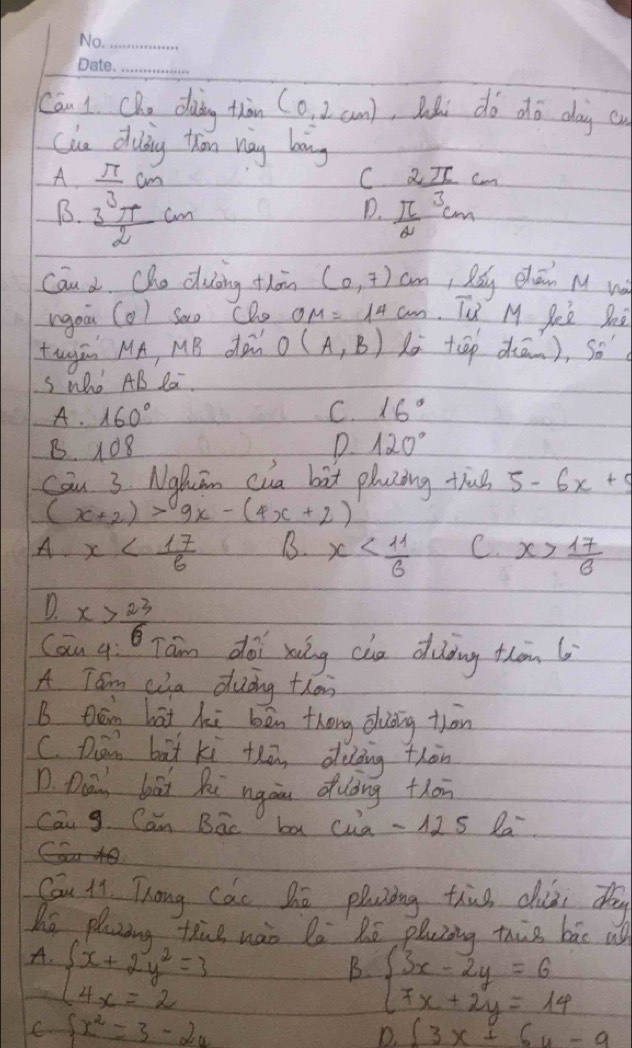 No. ...............
Date. ...............
Câu 1. Cho đường tròn (0,2 cm), khi đó độ dài
của đường tròn này bằng
A. π/3 cm C. 2π/3 cm
B. 3π/2 cm D. π/2 cm
Câu 2. Cho đường tròn (0,7) cm, lấy điểm M
ngoài (0) sao cho OM = 14 cm. Từ M kẻ
tuyến MA, MB đến O (A, B) là tiếp điểm), số
nhỏ AB là.
A. 160° C. 16°
B. 108 D. 120°
Câu 3. Nghiệm của bất phương trình 5 - 6x +
(x+2) > 9x - (4x + 2)
A. x < 17/6 B. x < 11/6 C. x > 17/6
D. x > 23/6
Câu 4: Tâm đối xứng của đường tròn là
A. Tâm của đường tròn
B. Điểm bất kì bên trong đường tròn
C. Điểm bất kì trên đường tròn
D. Điểm bất kì ngoài đường tròn
Câu 9. Căn Bậc ba của -125 là.
Câu 10
Câu 11. Trong các hệ phương trình dưới đây
hệ phương trình nào là hệ phương trình bậc
A. {x + 2y² = 3 B. {3x - 2y = 6
{4x = 2 {7x + 2y = 14
C. {x² = 3 - 2y D. {3x + 6y - 9